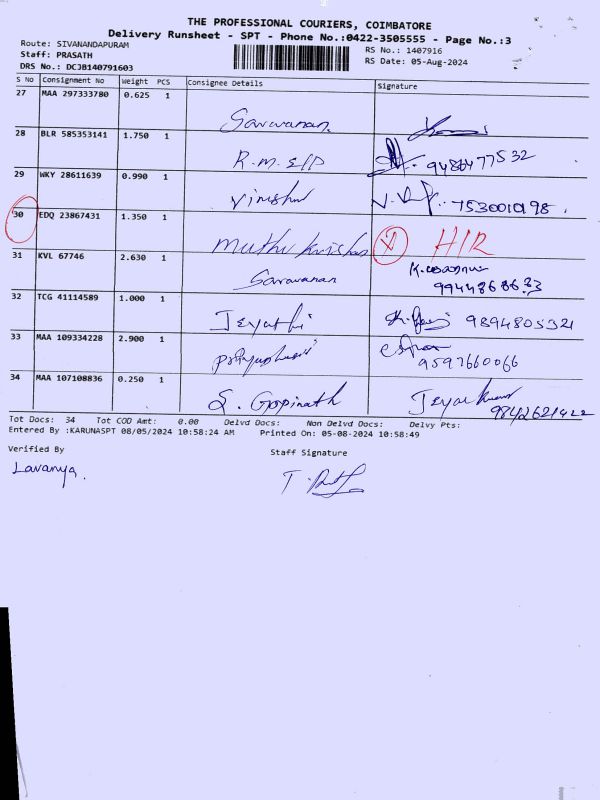 THE PROFESSIONAL COURIERS, COIMBATORE
Delivery Runsheet - SPT - Phone No.:0422-3505555 - Page No.:3
Route: SIVANANDAPURAM
Staff: PRASATH
DRS No.: DCJB140791603
RS No.: 1407916
RS Date: 05-Aug-2024
S No Consignment No Weight PCS Consignee Details Signature
27 MAA 297333780 0.625 1
Saravanan
28 BLR 585353141 1.750 1
R.M. 
29 WKY 28611639 0.990 1
V 7530010198.
30 EDQ 23867431 1.350 1
Muthu Krishnan
31 KVL 67746 2.630 1
Saravanan
32 TCG 41114589 1.000 1
Jeyathi 9894805321
33 MAA 109334228 2.900 1
9597660066
34 MAA 107108836 0.250 1
S. Gopinath 9842621422
Tot Docs: 34 Tot COD Amt: 0.00 Delvd Docs: Non Delvd Docs: Delvy Pts:
Entered By :KARUNASPT 08/05/2024 10:58:24 AM Printed On: 05-08-2024 10:58:49
Verified By
Staff Signature
Lavanya.